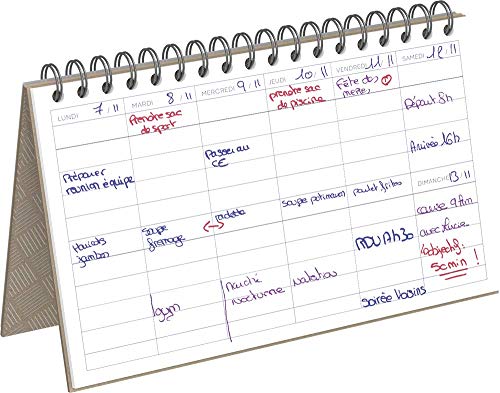 LUNDI 7/11
MARDI 8/11
MERCREDI 9/11
JEUDI 10/11
VENDREDI 11/11
SAMEDI 12/11
Prendre sac
de sport
prendre sac
de piscine
Fête des
Départ 8h
Préparer
réunion équipe
Passer au
CE
Arrivée 16h
DIMANCHE 13/11
Haricots
jambon
soupe
fromage
soupe potimarron
poulet frites
RDV 17h30
course 9h
avec Lucie
objectif:
50 min !
gym
Marché
nocturne
Natation
soirée Voisins